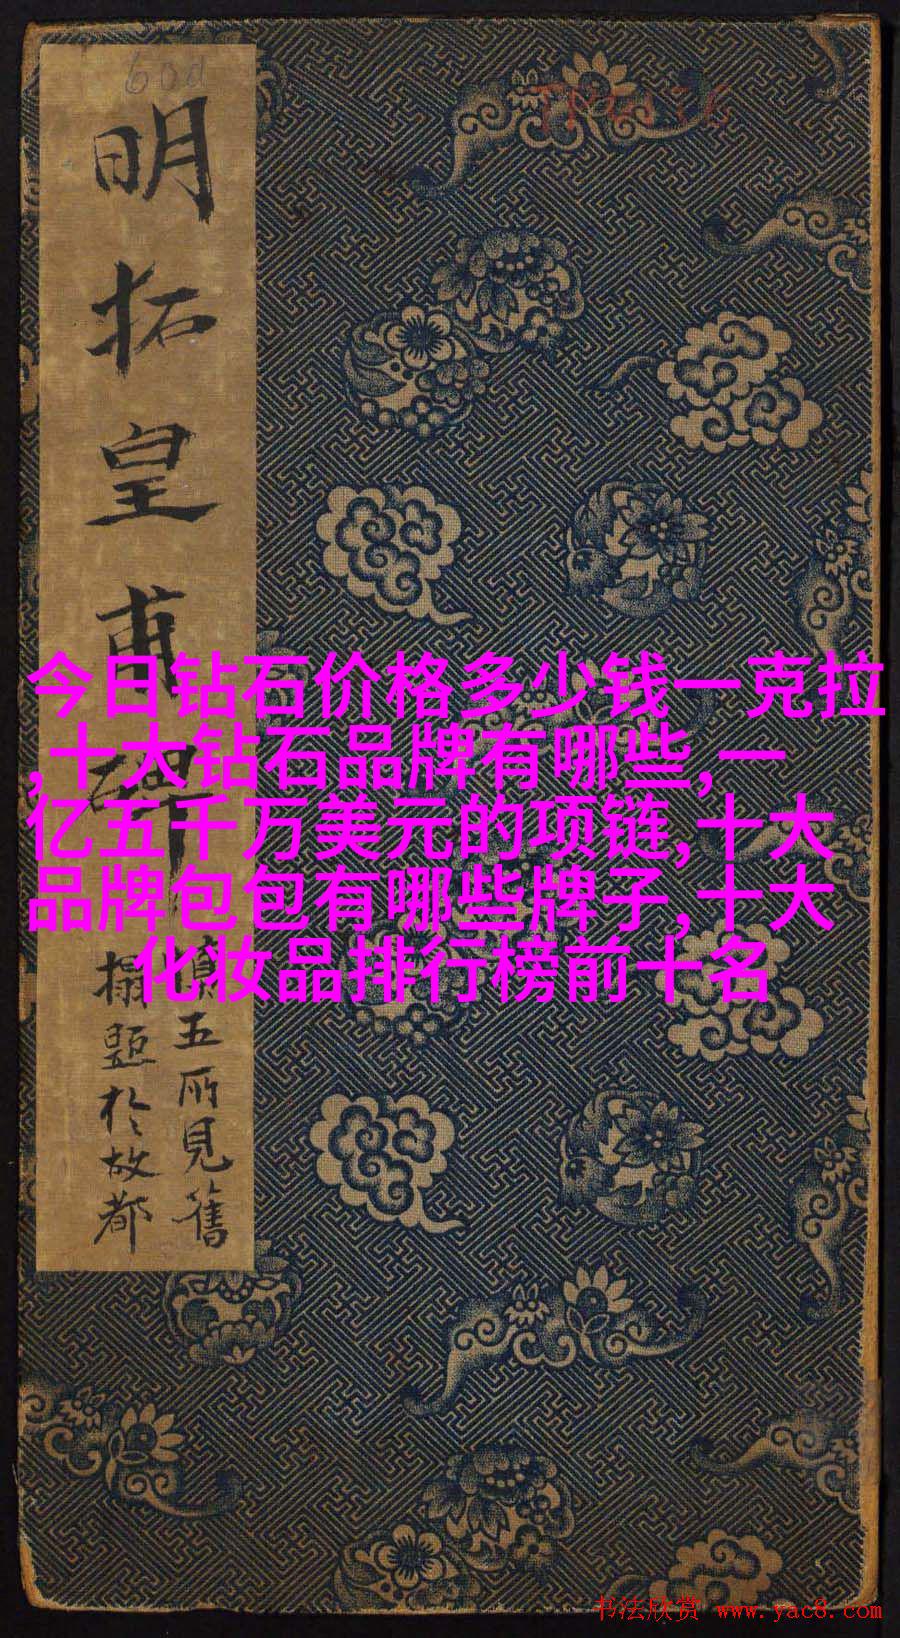 60d
明拓皇甫碑
五所見舊
搨題於故都
今日钻石价格多少钱一克拉
,十大钻石品牌有哪些,一
亿五千万美元的项链,十大
品牌包包有哪些牌子,十大
化妆品排行榜前十名
书法欣赏 www.yac8.com